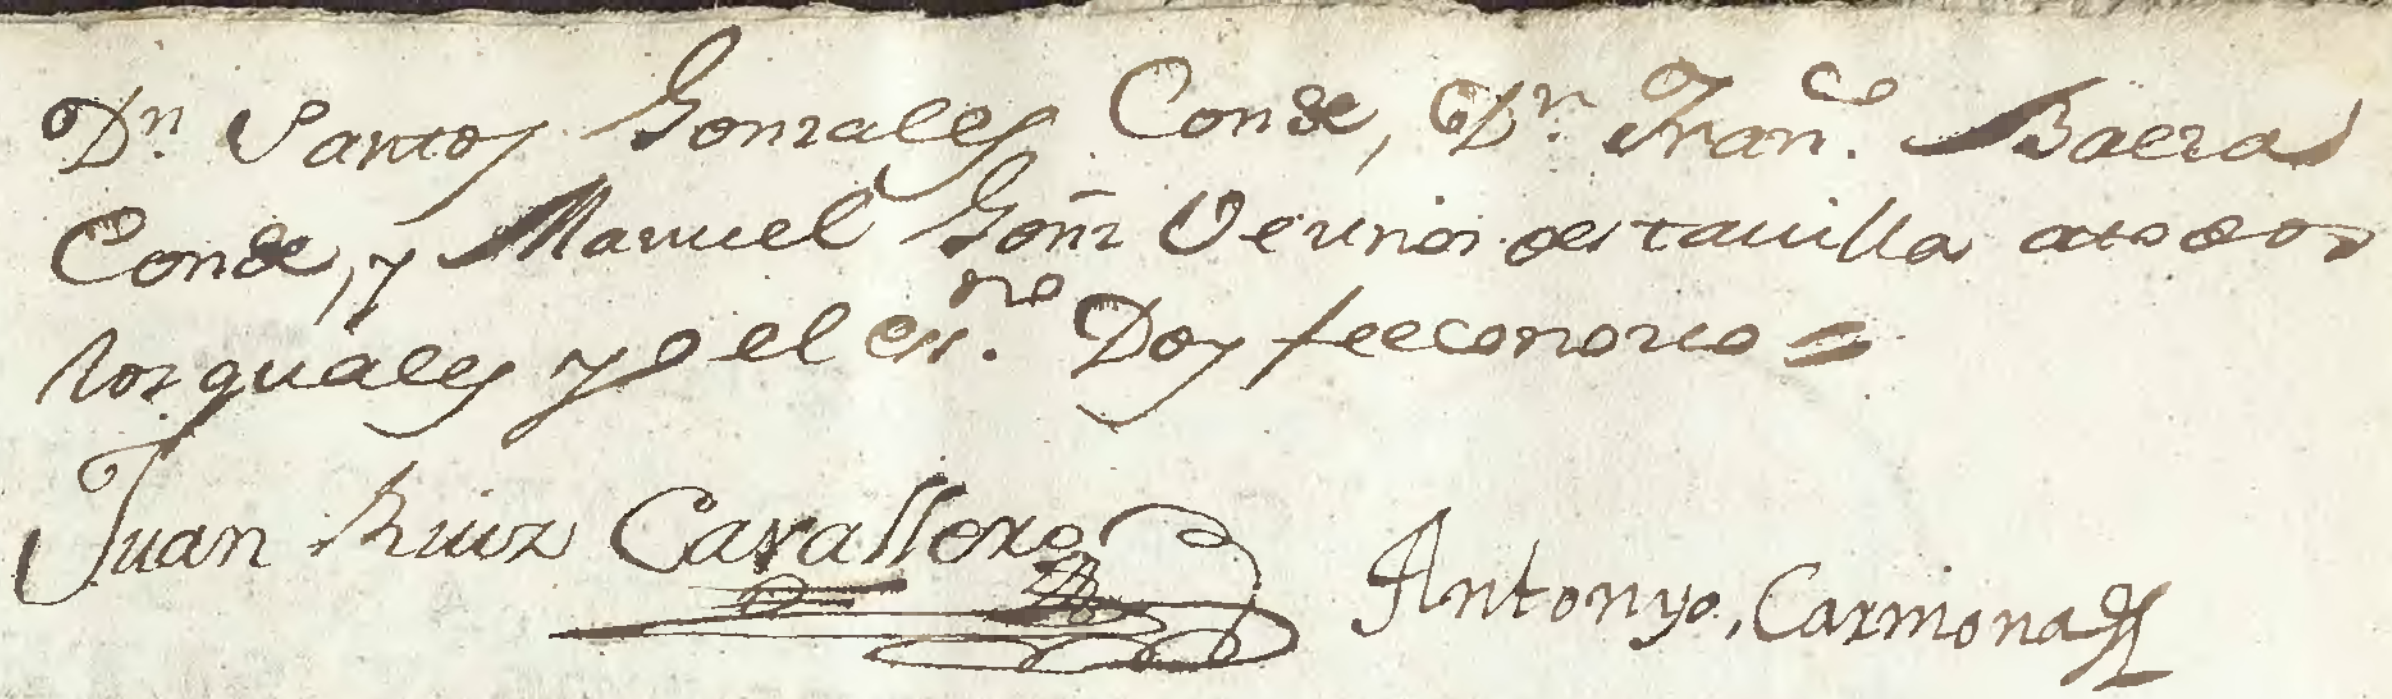 Dn. Santos Gonzales Conde, Dn. Franco. Baeza
Conde, y Manuel Gomz Vezinos destauilla atodos
losquales yo el essno. Doy feeconozco =
Juan Ruiz Cavallero
Antonyo, Carmona